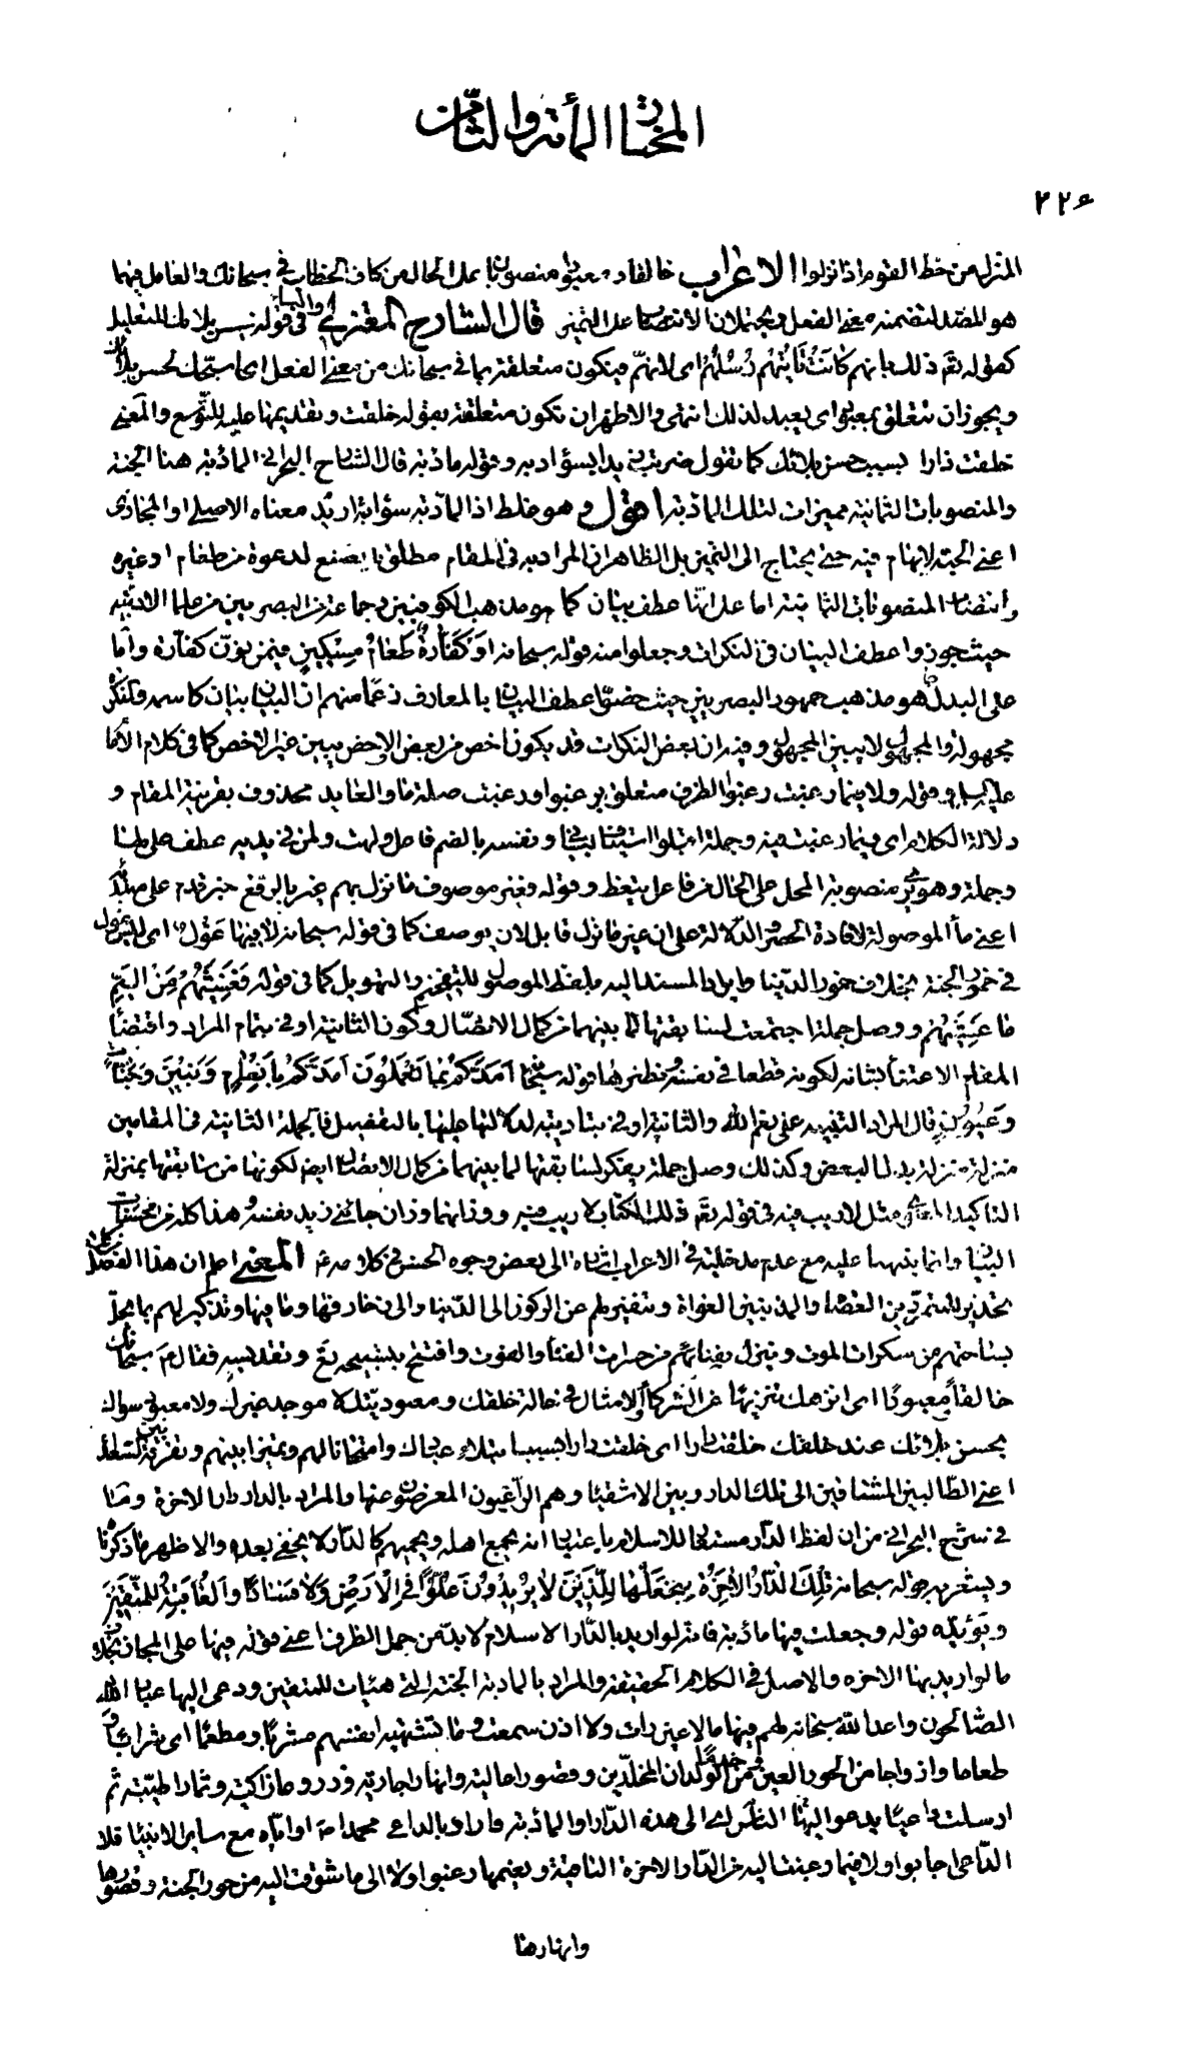 المختار المأة والثامن
٢٢٤
المنزل من خط القوم اذا نزلوا الاعراب خالقا و معبودا منصوبان على الحال من كاف الخطاب في سبحانك والعامل فيهما
هو المصدر لتضمنه معنى الفعل ويحتملان الانتصاب على التميز قال الشارح المعتزلي والباء في قوله بحسن بلائك للتعليل
كقوله تعالى ذلك بانهم كانت تأتيهم رسلهم اى لانهم فيكون متعلقة بما في سبحانك من معنى الفعل اى اسبحك لحسن بلائك
ويجوز ان تتعلق بمعبود اى يعبد لذلك انتهى والاظهر ان تكون متعلقة بقوله خلقت و تقديمها عليه للتوسع والمعنى
خلقت دارا بسبب حسن بلائك كما تقول ضربت زيدا بسوء ادبه و قوله مأدبة قال الشارح البحراني المأدبة هنا الجنة
والمنصوبات الثمانية مميزات لتلك المأدبة اقول و هو غلط اذ المأدبة سواء اريد معناه الاصلي او المجازى
اعنى الجنة لا ابهام فيه حتى يحتاج الى التميز بل الظاهر ان المراد به في المقام مطلق ما يصنع لدعوة من طعام او غيره
وانتصاب المنصوبات الثمانية اما على انها عطف بيان كما هو مذهب الكوفيين و جماعة من البصريين من علماء الادبية
حيث جوزوا عطف البيان في النكرات وجعلوا منه قوله سبحانه او كفارة طعام مسكين فيمن نون كفارة واما
على البدل كما هو مذهب جمهور البصريين حيث خصوا عطف البيان بالمعارف زعما منهم ان البيان بيان كاسمه والنكرة
مجهولة والمجهول لا يبين المجهول و فيه ان بعض النكرات قد يكون اخص من بعض والاخص يبين غير الاخص كما في كلام الامام
عليه السلام و قوله ولا فيما رغبت رغبوا الظرف متعلق برغبوا و رغبت صلة ما والعايد محذوف بقرينة المقام و
دلالة الكلام اى فيما رغبت فيه و جملة اقبلوا استيناف بياني و نفسه بالضم فاعل ولهت ولمن في يديه عطف على لها
وجملة وهو يرى منصوبة المحل على الحال من فاعل يتعظ و قوله و غير موصوف ما نزل بهم غير بالرفع خبر قدم على مبتدئه
اعنى ما الموصولة لافادة الحصر والدلالة على ان غير ما نزل قابل لان يوصف كما في قوله سبحانه لا فيها غول اى ليس غول
في خمور الجنة بخلاف خمور الدنيا وايراد المسند اليه بلفظ الموصول للتفخيم والتهويل كما في قوله فغشيهم من اليم
ما غشيهم و وصل جملة اجتمعت لسابقتها لما بينهما من كمال الاتصال و كون الثانية اوفى بتمام المراد واقتضاء
المقام الاعتناء بشانه لكونه فظعا في نفسه و نظيرها قوله سبحانه امدكم بما تعلمون امدكم بانعام وبنين وجنات
وعيون فان المراد التنبيه على نعم الله والثانية اوفى بتاديته لدلالتها عليها بالتفصيل فالجملة الثانية في المقامين
منزلة منزلة بدل البعض و كذلك وصل جملة يفكر لسابقتها لما بينهما من كمال الاتصال ايضا لكونها من سابقتها بمنزلة
التاكيد المعنوى مثل لا ريب فيه في قوله تعالى ذلك الكتاب لا ريب فيه و وزانهما وزان جائني زيد نفسه و هذا كله من محسنات
البيان وانما نبهنا عليه مع عدم مدخليته في الاعراب اشارة الى بعض وجوه الحسن في كلامه ع المعنى اعلم ان هذا الفصل
تحذير للمتمردين العصاة والمذنبين الغواة و تنفير لهم عن الركون الى الدنيا والى زخارفها و ما فيها و تذكير لهم بما يحل
بساحتهم من سكرات الموت و ينزل بفنائهم من حسرات الفناء والفوت وافتتح بتسبيحه تعالى و تقديسه فقال سبحانك
خالقا و معبودا اى انزهك تنزيها عن الشركاء والامثال في حالة خلقك و معبوديتك لا موجد غيرك ولا معبود سواك
بحسن بلائك عند خلقك خلقت دارا اى خلقت دارا بسبب ابتلاء عبادك وامتحانا لهم و تميزا بينهم و تفرقة بين السعداء
اعنى الطالبين المشتاقين الى تلك الدار و بين الاشقياء و هم الراغبون المعرضون عنها والمراد بالدار دار الاخرة و ما
في شرح البحراني من ان لفظ الدار مستعار للاسلام باعتبار انه يجمع اهله و يحميهم كالدار لا يخفى بعده والاظهر ما ذكرنا
ويشعر به قوله سبحانه تلك الدار الاخرة نجعلها للذين لا يريدون علوا في الارض ولا فسادا والعاقبة للمتقين
و يؤيده قوله و جعلت فيها مأدبة فانه لو اريد بالدار الاسلام لا بد من حمل الظرف اعنى قوله فيها على المجاز بخلاف
ما لو اريد بها الاخرة والاصل في الكلام الحقيقة والمراد بالمادبة الجنة التي هيات للمتقين و دعى اليها عباد الله
الصالحون واعد الله سبحانه لهم فيها ما لا عين رأت ولا اذن سمعت و ما تشتهيه انفسهم مشربا و مطعما اى شرابا و
طعاما و ازواجا من الحور العين و خدما من الولدان المخلدين و قصورا عالية وانهارا جارية و زروعا زاكية و ثمارا طيبة ثم
ارسلت داعيا يدعو اليها الناس اى الى هذه الدار او المأدبة واراد بالداعي محمدا ص او اياه مع ساير الانبياء فلا
الداعي اجابوا ولا فيما رغبت اليه من الدار الاخرة الباقية و نعيمها رغبوا ولا الى ما شوقت اليه من حور الجنة و قصورها
وانهارها